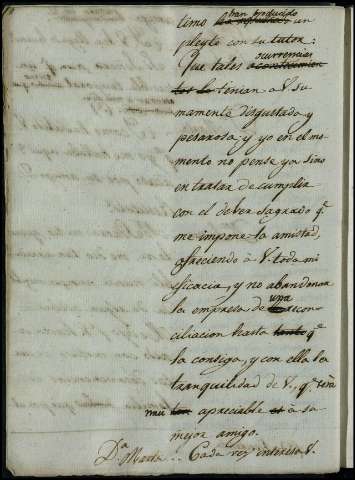 timo han producido un
pleyto con su tutor:
Que tales ocurrencias acontecimien
tos lo tenian a V. su
mamente disgustada y
pesarosa y yo en el mo-
mento no pense ya sino
en tratar de cumplir
con el deber sagrado q.e
me impone la amistad,
ofreciendo à V. toda mi
eficacia, y no abandonar
la empresa de una recon
ciliacion hasta tanto q.e
la consiga, y con ella la
tranquilidad de V., q.e será
mui tan apreciable à su
mejor amigo.
D.a Marta .. Cada vez interesa V.